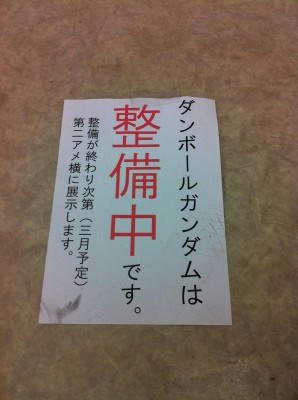 ダンボールガンダムは
整備中です。
整備が終わり次第（三月予定）
第二アメ横に展示します。